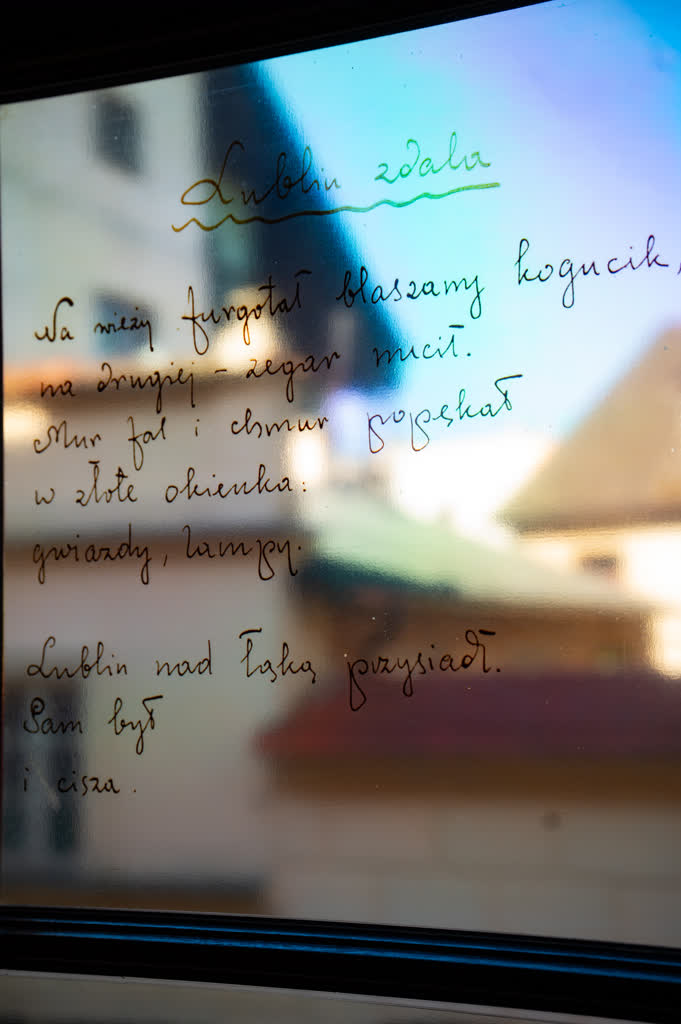 Lublin zdala
Na wieży furgotał blaszany kogucik,
na drugiej – zegar nucił.
Mur fal i chmur popękał
w złote okienka:
gwiazdy, lampy.
Lublin nad łąką przysiadł.
Sam był
i cisza.